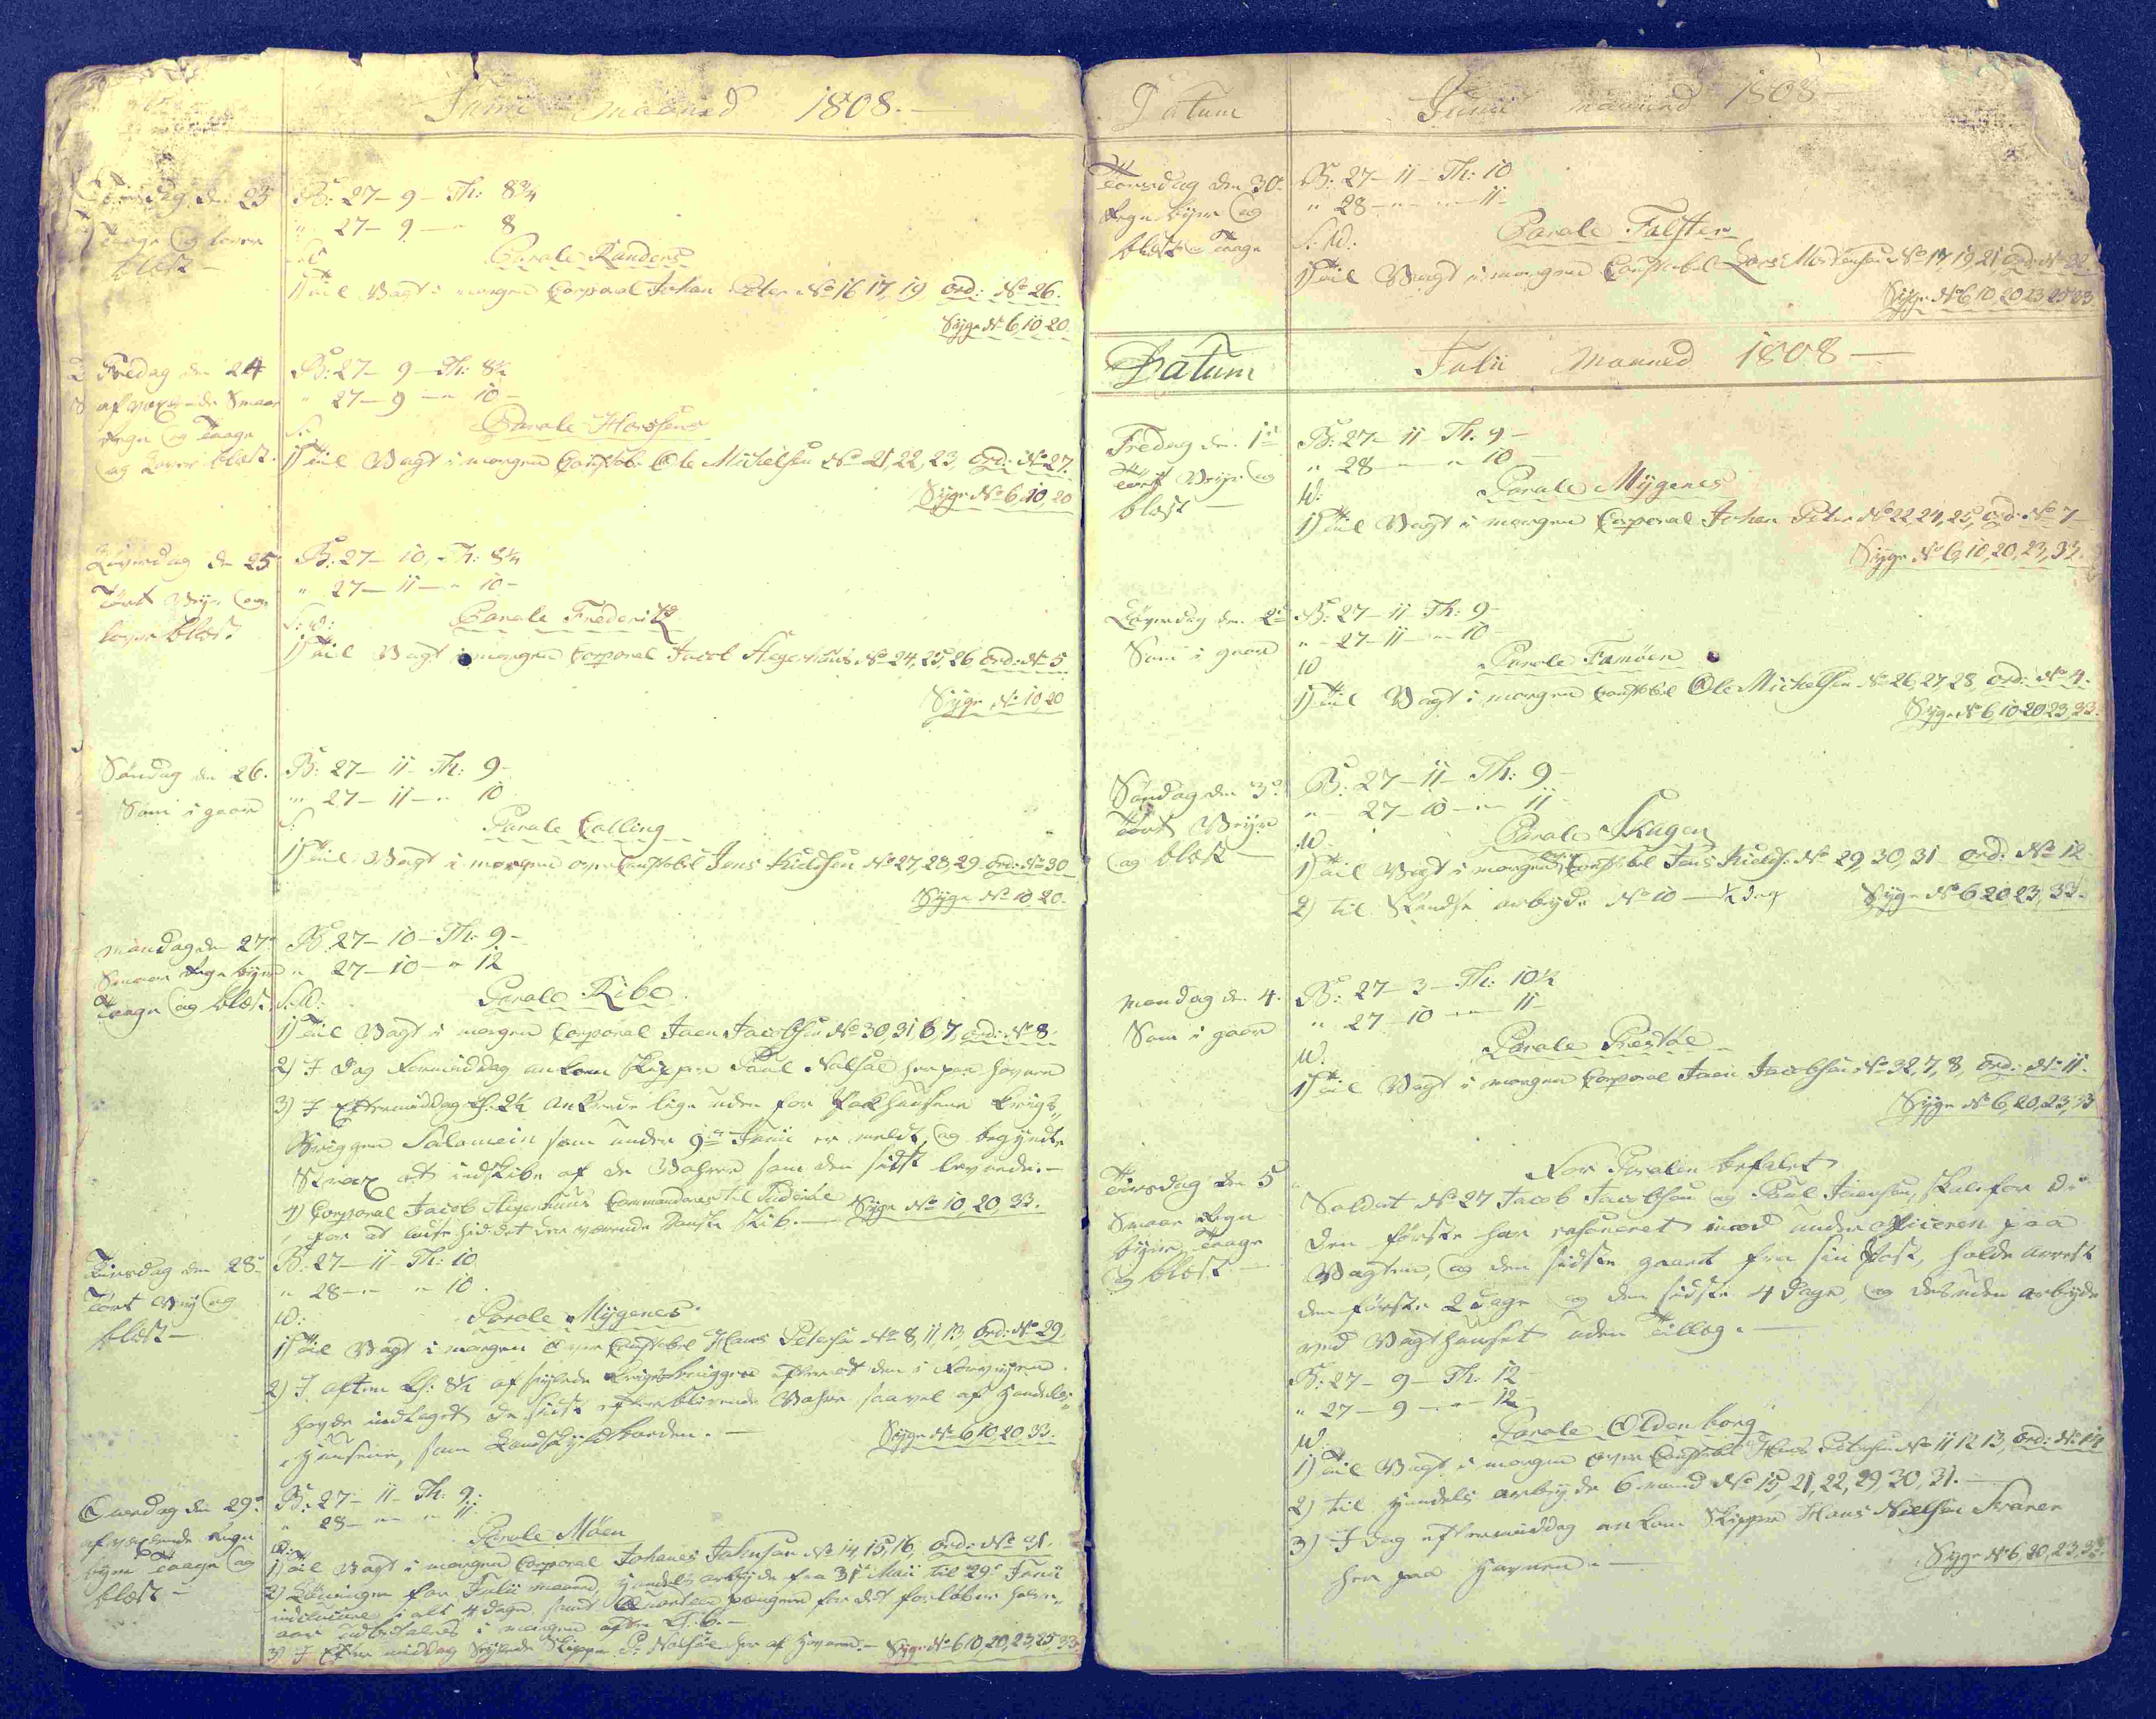 Junii maaned 1808.
Torsdag den 23
Taage og lover
blæst
B: 27-9- Th: 8¾
" 27-9-" 8
Parole Randers
1) Til Vagt i morgen Corporal Johan Peter No 16, 17, 19 Ord: No 26.
Syge No 6, 10, 20.
Fredag den 24
afvexlende Smaa
Regn og Taage
og Laver blæst.
B: 27- 9- Th: 8½
" 27-9-" 10-
S:
Parole Horsens
1) Til Vagt i morgen Constabel Ole Michelsen No 21, 22, 23, Ord: No 27.
Syge No 6, 10, 20
Løverdag den 25
Tört Veyr og
laver blæst
B: 27- 10, Th: 8¼
" 27- 11-" 10-
S: W:
Parole Frederits
1) Til Vagt i morgen Corporal Jacob Hegerhuus No 24, 25, 26 Ord: No 5
Syge No 10, 20
Søndag den 26.
Som i gaar
B: 27- 11- Th: 9-
" 27- 11-" 10
S:
Parole Colling
1) Til Vagt i morgen over Constabel Jens Kieldsen No 27, 28, 29 Ord: No 30
Syge No 10, 20.
Mandag den 27
Smaa Regn byer
Taage og blæst
B: 27- 10- Th: 9-
" 27-10-" 12
S: W:
Parole Ribe
1) Til Vagt i morgen Corporal Joen Jacobsen No 30, 31, 6, 7, Ord: No 8.
2) I Dag Formiddag ankom Skipper Poul Nolsøe her paa havnen
3) I Eftermiddag Kl. 2½ ankrede lige uden for Pakhusene Krigs
Briggen Salamein som under 9de Junii er meldt, og begyndte
Strax at indskibe af de Vahrer som den sidst levnede.-
4) Corporal Jacob Hegerhuus Commanderes til Suderöe
for at lodse hid det der værende Danske Skib.- Syge No 10, 20, 33.
Tirsdag den 28
Tört Veyr og
blæst-
B: 27- 11- Th: 10
" 28-" " 10.
W:
Parole Mygenes
1) Til Vagt i morgen Over Constabel Hans Petersen No 8, 11, 13, Ord: No 29.
2) I aften Kl: 8½ afseylede Krigsbriggen efter at den i Forveyen
havde indtaget de sidst efterblevende Vahrer saavel af Handels
Husene, som Landskyldboeden.- Syge No 6, 10, 20, 33.
Onsdag den 29
afvexlende Regn
byer Taage og
blæst-
B: 27- 11- Th: 9:
" 28-" " 11
W:
Parole Möen
1) Til Vagt i morgen Corporal Johanes Johnsen No 14, 15, 16, Ord: No 31.
2) Lönningen for Julii maaned, Handels arbeyde fra 31 Maii til 29 Junii
inclusive i alt 4 dage, samt Qvarteer pengene for det forløbne halve
aar udbetales i morgen efter Kl. 6.-
3) I Efter middag Seylede Skipper P: Nolsöe her af Havnen.- Syge No 6, 10, 20, 23, 25, 33.
Datum
Junii maaned 1808-
Torsdag den 30
Regn byer og
blæst og Taage
B: 27- 11- Th: 10
" 28-" " 11-
S: W:
Parole Falster
1) Til Vagt i morgen Constabel Lars Mortensen No 17, 19, 21, Ord: No 32.
Syge No 6, 10, 20, 23, 25, 33
Datum
Julii Maaned 1808-
Fredag den 1ste
Tört Veyr og
blæst-
B: 27- 11 Th. 9-
" 28-" " 10-
W:
Parole Mygenes
1) Til Vagt i morgen Corporal Johan Peter No 22, 24, 25, Ord: No 7
Syge No 6, 10, 20, 23, 33.
Løverdag den 2
Som i gaar
B: 27- 11 Th: 9-
" 27-11-" 10-
W
Parole Famöen
1) Til Vagt i morgen Constabel Ole Michelsen No 26, 27, 28, Ord: No 4.
Syge No 6, 10, 20, 23, 33.
Søndag den 3
Tört Veyr
og blæst-
B: 27- 11- Th: 9-
" 27-10-" 11-
W.
Parole Skagen
1) Til Vagt i morgen over Constabel Jens Kields: No 29, 30, 31 Ord: No 12
2) til Skandse arbeyde No 10- ½ dag Syge No 6, 20, 23, 33.
Mandag den 4.
Som i gaar
B: 27- 3- Th: 10½
" 27- 10-" 11-
W.
Parole Prestöe
1) Til Vagt i morgen Corporal Joen Jacobsen No 32, 7, 8, Ord: No 11.
Syge No 6, 20, 23, 33
Tirsdag den 5
Smaa Regn
byer, Taage
og blæst-
For Parolen befalet
Soldat No 27 Jacob Jacobsen og Poul Joensen, skal for di
den første har resoneret imod underofficeren paa
Vagten, og den sidste gaaet fra sin Post, holde arrest
den første 2 dage og den sidste 4 Dage, og desuden arbeyde
ved Vagthuuset uden Tillæg.-
B: 27- 9- Th: 12-
" 27- 9-" 12
W.
Parole Oldenborg
1) Til Vagt i morgen over Constabel Hans Petersen No 11, 12, 13, Ord: No 14
2) til Handels arbeyde 6 mand No 15, 21, 22, 29, 30, 31.-
3) I dag eftermiddag ankom Skipper Hans Nielsen Svaner
her paa Havnen.- Syge No 6, 20, 23, 33.